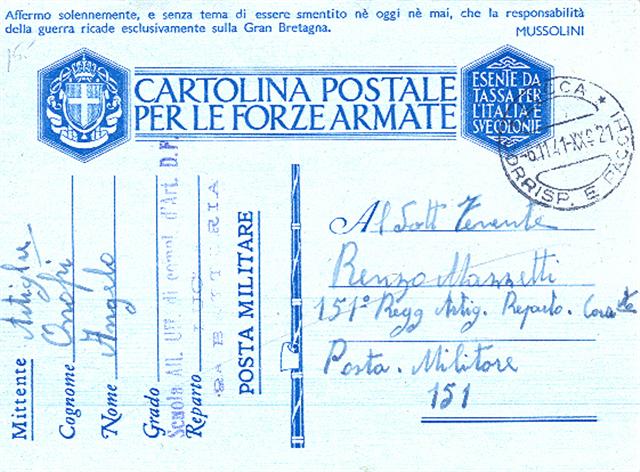 Affermo solennemente, e senza tema di essere smentito nè oggi nè mai, che la responsabilità
della guerra ricade esclusivamente sulla Gran Bretagna.
MUSSOLINI
CARTOLINA POSTALE
PER LE FORZE ARMATE
ESENTE DA
TASSA PER
L'ITALIA E
SVE COLONIE
LUCCA
-6.11.41-XX 21
CORRISP. E PACCHI
Mittente Artigliere
Cognome Onofri
Nome Angelo
Grado
Scuola All. Uff. di compl. d'Art. D.F.
Reparto
8a BATTERIA
POSTA MILITARE
Al Sott Tenente
Renzo Mazzetti
151° Regg Artig. Reparto.
Posta. Militare
151